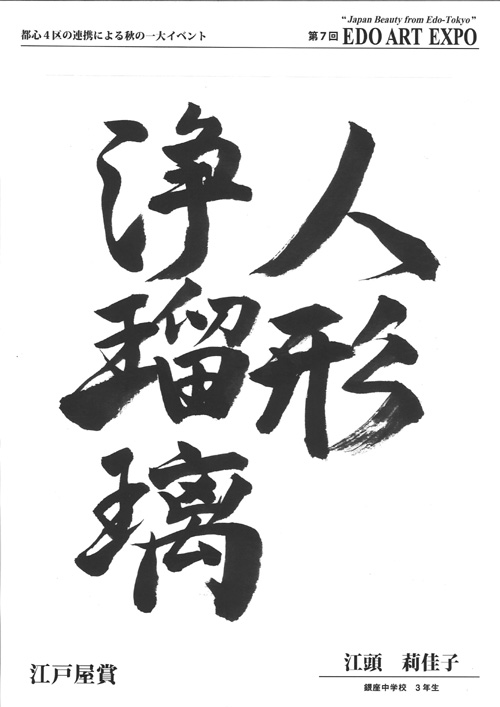 都心4区の連携による秋の一大イベント
"Japan Beauty from Edo-Tokyo"
第7回 EDO ART EXPO
人形
浄瑠璃
江戸屋賞
江頭 莉佳子
銀座中学校 3年生